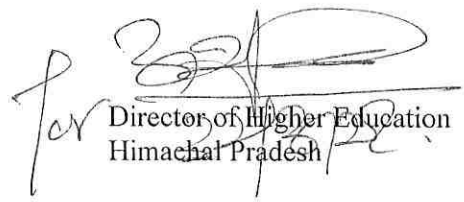 for Director of Higher Education
Himachal Pradesh